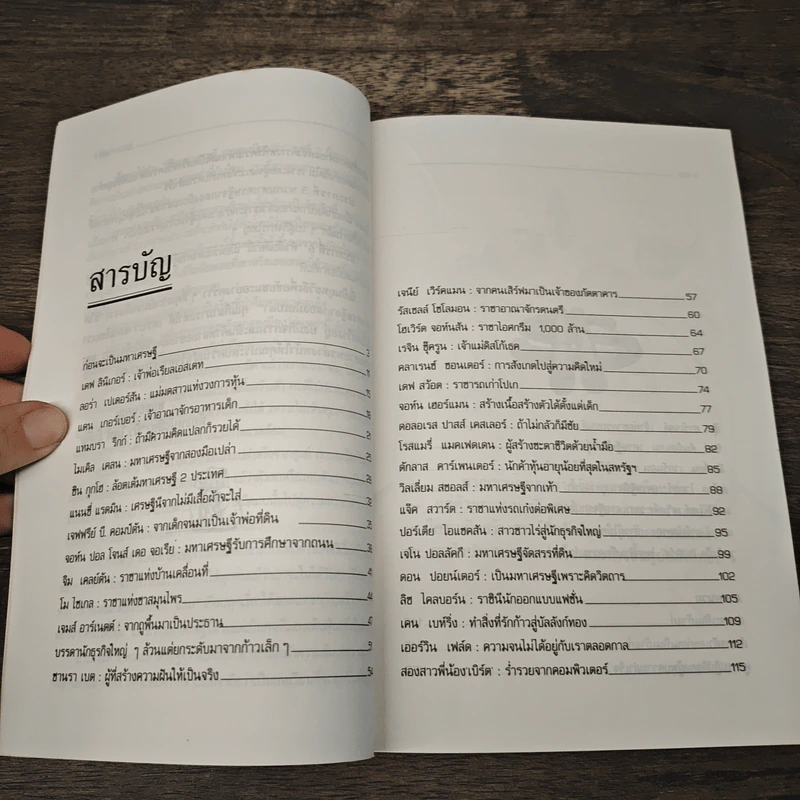 สารบัญ
ก่อนจะเป็นมหาเศรษฐี
เดฟ ลินิเกอร์ : เจ้าพ่อเรียลเอสเตท
ลอร่า เปเดอร์สัน : แม่มดสาวแห่งวงการหุ้น
แดน เกอร์เบอร์ : เจ้าอาณาจักรอาหารเด็ก
แทมบรา รีกก์ : ถ้ามีความคิดแปลกก็รวยได้
ไมเคิล เดลน : มหาเศรษฐีจากสองมือเปล่า
ชิน กุกโฮ : ล้อตเต้มหาเศรษฐี 2 ประเทศ
แนนซี่ แรดมัน : เศรษฐินีจากไม่มีเสื้อผ้าจะใส่
เจฟฟรีย์ บี. คอมป์ตัน : จากเด็กจนมาเป็นเจ้าพ่อที่ดิน
จอห์น ปอล โจนส์ เดอ จอเรีย : มหาเศรษฐีรับการศึกษาจากถนน
จิม เคลย์ตัน : ราชาแห่งบ้านเคลื่อนที่
โม ไซเกล : ราชาแห่งชาสมุนไพร
เจมส์ อาร์เนตต์ : จากถูพื้นมาเป็นประธาน
บรรดานักธุรกิจใหญ่ ๆ ล้วนแต่ยกระดับมาจากก้าวเล็ก ๆ
ฮานรา เบด : ผู้ที่สร้างความฝันให้เป็นจริง
เจนีย์ เวิร์คแมน : จากคนเสิร์ฟมาเป็นเจ้าของภัตตาคาร 57
รัสเซลล์ โซโลมอน : ราชาอาณาจักรดนตรี 60
โฮเวิร์ด จอห์นสัน : ราชาไอศกรีม 1,000 ล้าน 64
เรจิน ชู๊ครูน : เจ้าแม่ดิสโก้เธค 67
คลาเรนซ์ ซอนเดอร์ : การสังเกตไปสู่ความคิดใหม่ 70
เดฟ สวัอด : ราชารถเก่าโปเก 74
จอห์น เฮอร์แมน : สร้างเนื้อสร้างตัวได้ตั้งแต่เด็ก 77
ดอลอเรส ปาสส์ เคสเลอร์ : ถ้าไม่กลัวก็มีชัย 79
โรสแมรี่ แมคเฟดเดน : ผู้สร้างชะตาชีวิตด้วยน้ำมือ 82
ดักลาส คาร์เพนเตอร์ : นักค้าหุ้นอายุน้อยที่สุดในสหรัฐฯ 85
วิลเลี่ยม สชอลส์ : มหาเศรษฐีจากเท้า 88
แจ๊ค สวาร์ด : ราชาแห่งรถเก่งต่อพิเศษ 92
ปอร์เตีย ไอแซคสัน : สาวชาวไร่สู่นักธุรกิจใหญ่ 95
เจโน ปอลลัดกี : มหาเศรษฐีจัดสรรที่ดิน 99
ดอน ปอยน์เตอร์ : เป็นมหาเศรษฐีเพราะคิดวิตถาร 102
ลิซ ไคลบอร์น : ราชินีนักออกแบบแฟชั่น 105
เดน เบห์ริ่ง : ทำสิ่งที่รักก้าวสู่บัลลังก์ทอง 109
เออร์วิน เฟล์ด : ความจนไม่ได้อยู่กับเราตลอดกาล 112
สองสาวพี่น้อง'เบิร์ด' : ร่ำรวยจากคอมพิวเตอร์ 115